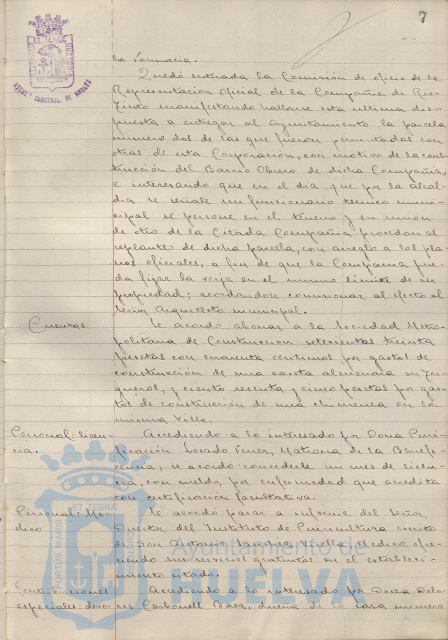 7
la Farmacia.
Quedó enterada la Comisión de oficio de la
Representación Oficial de la Compañia de Rio-
Tinto manifestando hallarse esta ultima dis-
puesta a entregar al Ayuntamiento la parcela
numero dos de las que fueron permutadas con
otras de esta Corporacion, con motivo de la cons-
trucción del Barrio Obrero de dicha Compañia,
e interesando que en el dia que por la Alcal-
dia se señale un funcionario tecnico muni-
cipal se persone en el mismo y en union
de otro de la Citada Compañia procedan al
replanteo de dicha parcela, con arreglo a los pla-
nos oficiales, a fin de que la Compañia pue-
da fijar la verja en el mismo limite de su
propiedad; acordandose comisionar al efecto al
señor Arquitecto municipal.
Cuentas
Se acordó abonar a la Sociedad Metro-
politana de Construccion setecientas treinta
pesetas con cuarenta centimos por gastos de
construcción de una caseta
y ciento sesenta y cinco pesetas por gas-
tos de construccion de una chimenea en la
misma Villa.
Personal: licen-
cia.
Accediendo a lo interesado por Doña Puri-
ficación Losado Ferrer, Matrona de la Benefi-
cencia, se acordo concederle un mes de licen-
cia, con sueldo, por enfermedad que acredita
con certificación facultativa.
Personal: Me-
dico
Se acordó pasar a informe del Señor
Director del Instituto de Puericultura escrito
de Don Antonio Sanchez Medico, ofre-
ciendo sus servicios gratuitos en el estableci-
miento citado.
Contribuciones
especiales:
Accediendo a lo interesado por Doña Dolo-
res Carbonell Baez, dueña de la casa numero
Ayuntamiento de
HUELVA